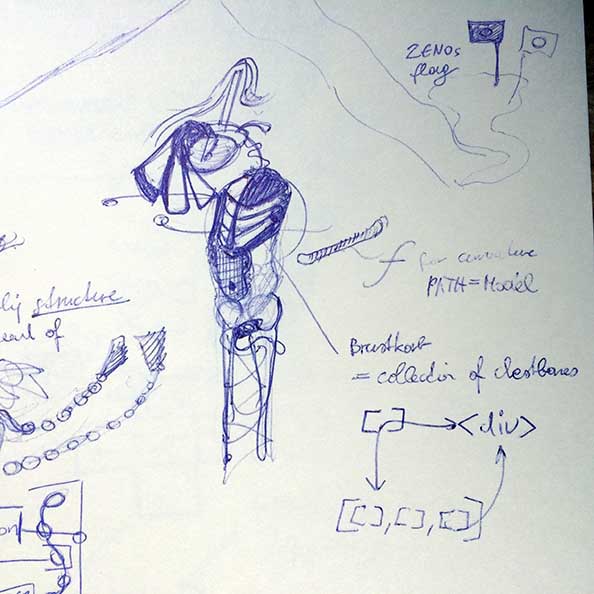 ZENOs
flag
f for curvature
PATH = Model
structure
of
Brustkorb
= collection of chestbones
[ ] <div>
[[ ], [ ], [ ]]